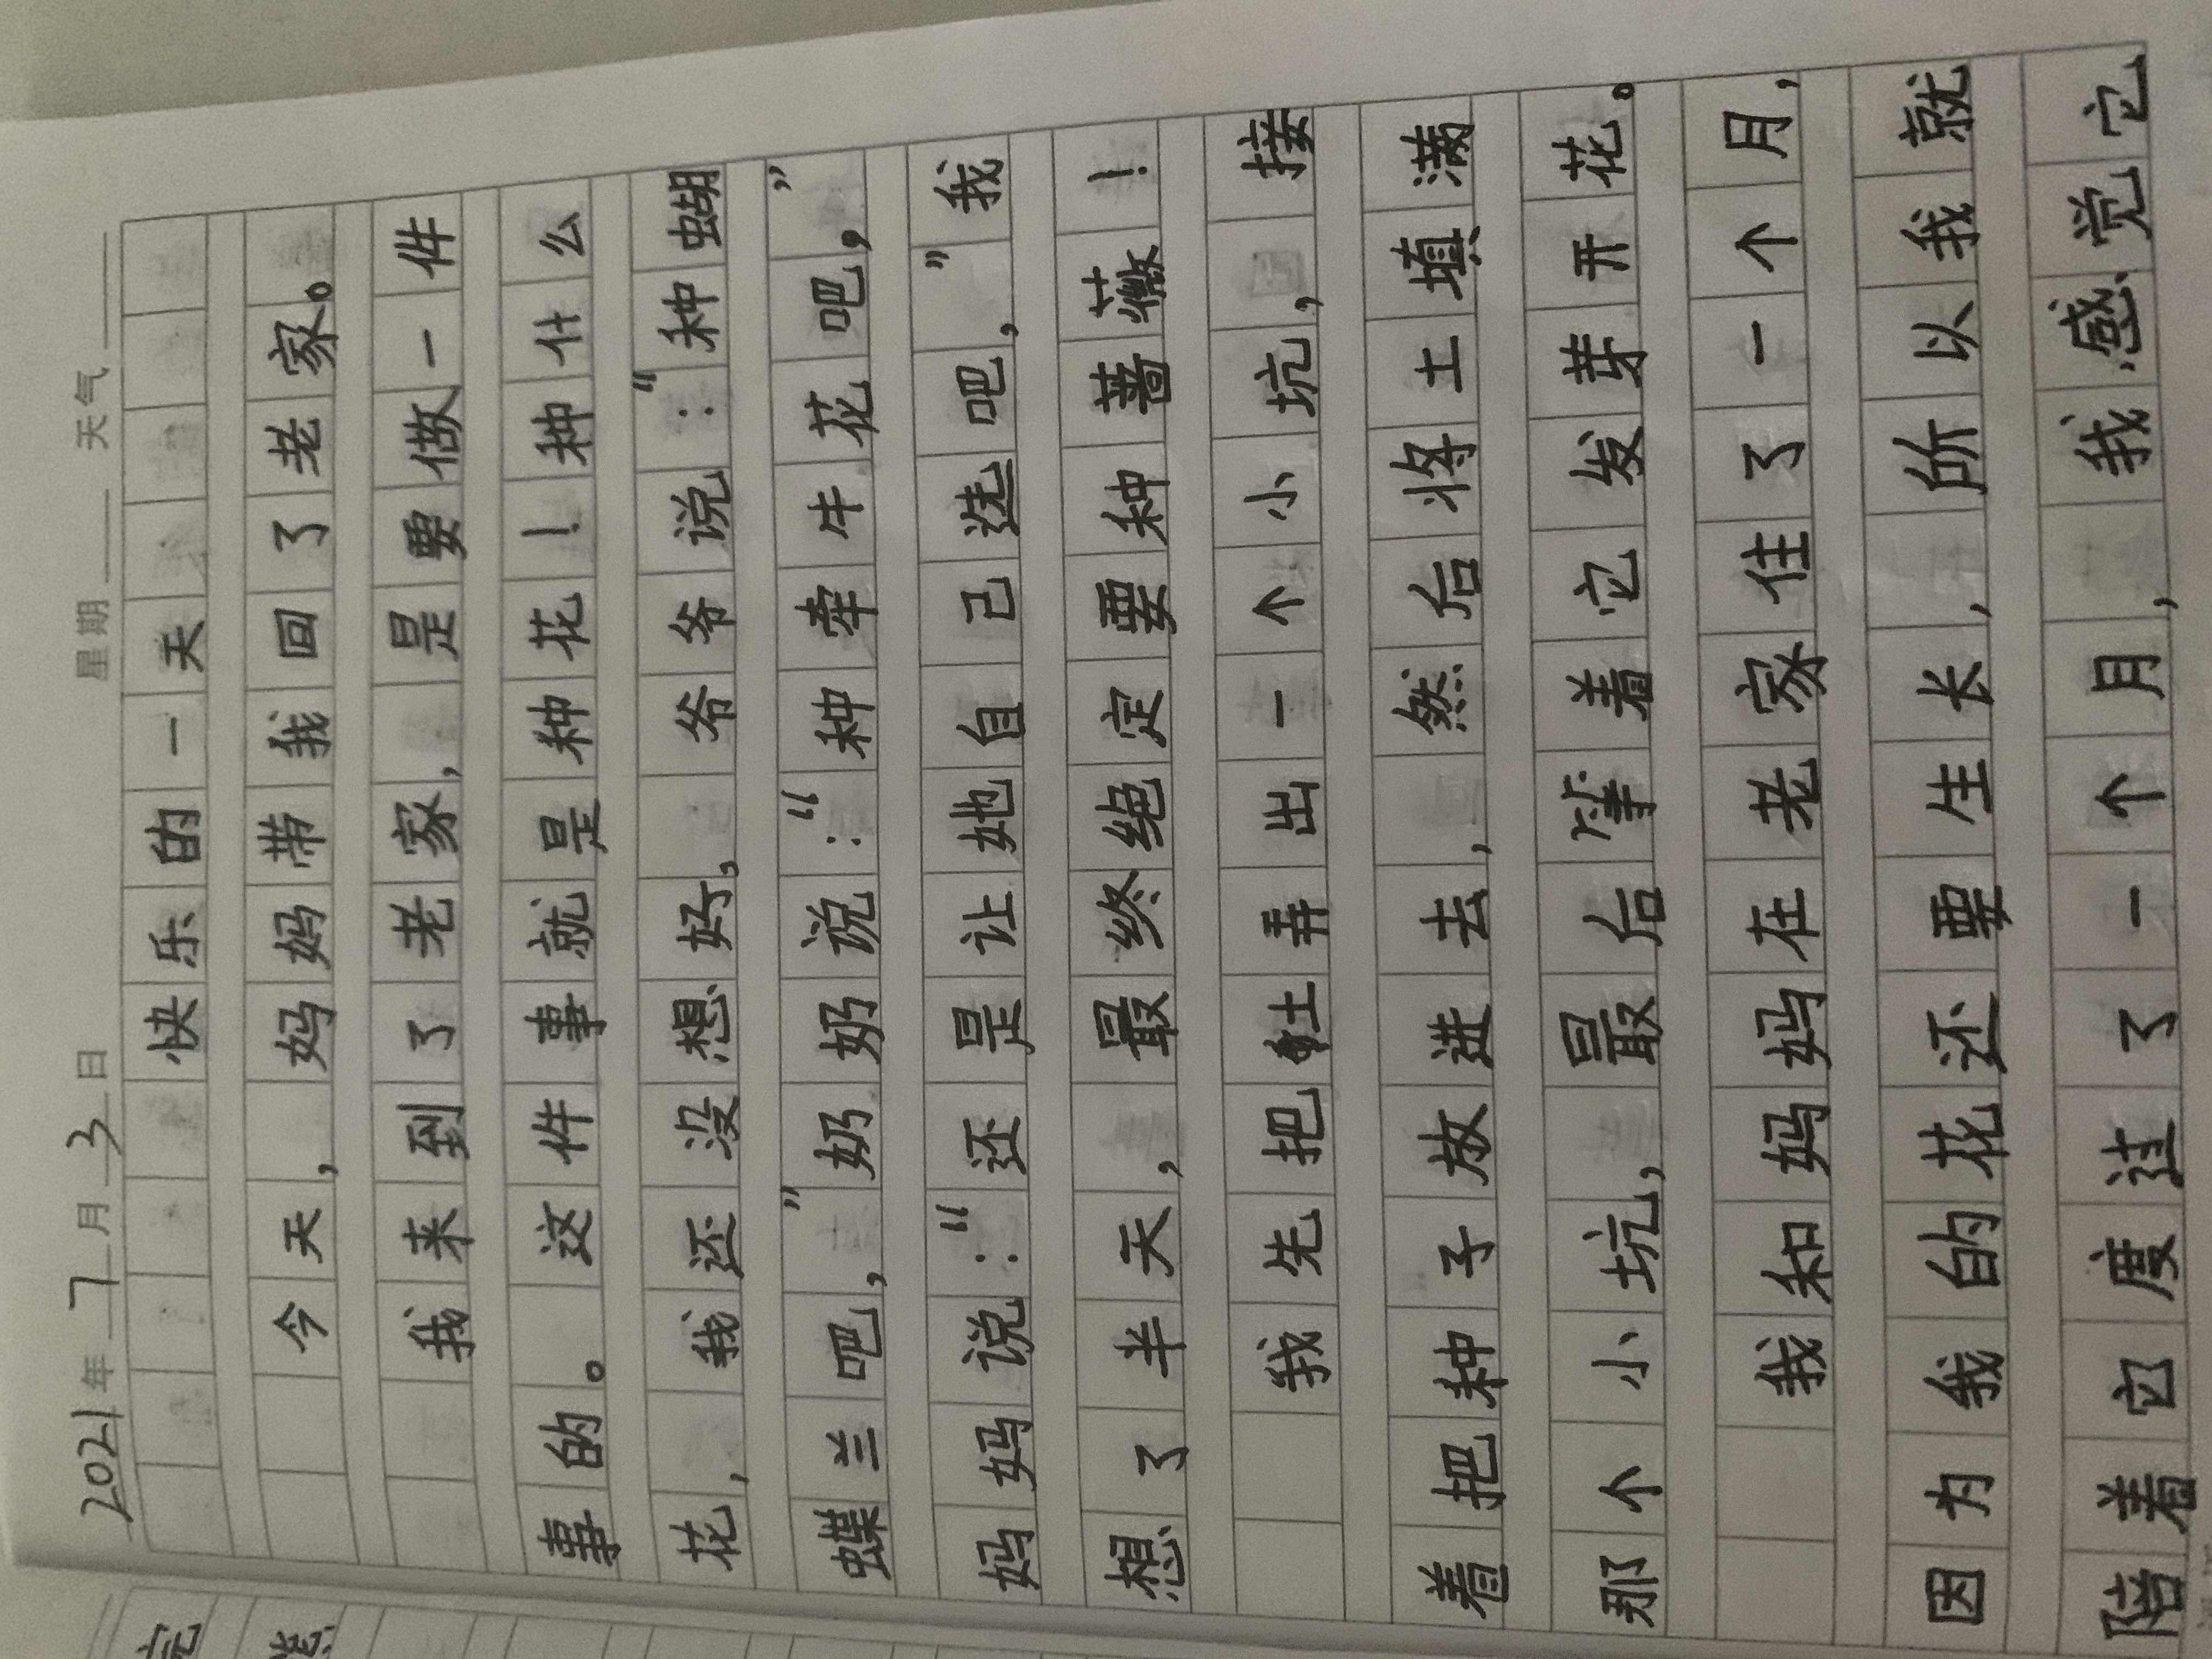 2021年7月3日 星期 天气
快乐的一天
今天，妈妈带我回了老家。
我来到了老家，是要做一件
事的。这件事就是种花！种什么
花，我还没想好，爷爷说：“种蝴
蝶兰吧，”奶奶说：“种牵牛花吧，”
妈妈说：“还是让她自己选吧，”我
想了半天，最终绝定要种蔷薇！
我先把土弄出一个小坑，接
着把种子放进去，然后将土填满
那个小坑，最后等着它发芽开花。
我和妈妈在老家住了一个月，
因为我的花还要生长，所以我就
陪着它度过了一个月，我感觉它